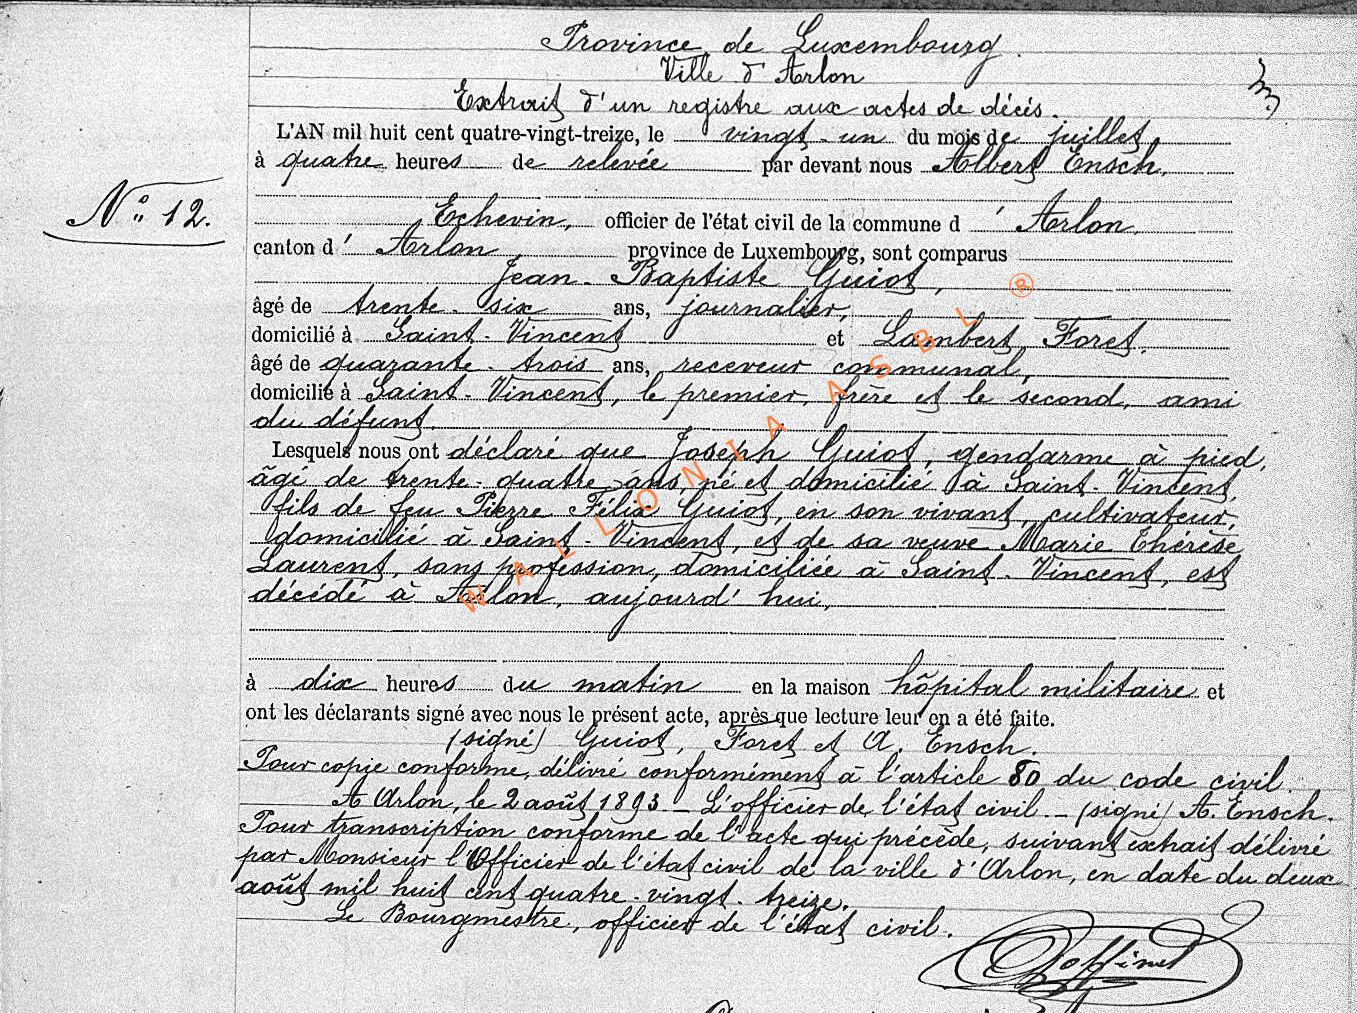 Province de Luxembourg.
Ville d'Arlon
Extrait d'un registre aux actes de décès.
L'AN mil huit cent quatre-vingt-treize, le vingt-un du mois de juillet,
à quatre heures de relevée par devant nous Albert Ensch,
N° 12.
Echevin, officier de l'état civil de la commune d' Arlon,
canton d' Arlon province de Luxembourg, sont comparus
Jean-Baptiste Guiot,
âgé de trente-six ans, journalier,
domicilié à Saint-Vincent et Lambert Foret,
âgé de quarante-trois ans, receveur communal,
domicilié à Saint-Vincent, le premier, frère et le second, ami
du défunt.
Lesquels nous ont déclaré que Joseph Guiot, gendarme à pied,
âgé de trente-quatre ans, né et domicilié à Saint-Vincent,
fils de feu Pierre Félix Guiot, en son vivant, cultivateur,
domicilié à Saint-Vincent, et de sa veuve Marie Thérèse
Laurent, sans profession, domiciliée à Saint-Vincent, est
décédé à Arlon, aujourd'hui,
à dix heures du matin en la maison hôpital militaire et
ont les déclarants signé avec nous le présent acte, après que lecture leur en a été faite.
(signé) Guiot, Foret et A. Ensch.
Pour copie conforme, délivré conformément à l'article 80 du code civil.
A Arlon, le 2 août 1893 – L'officier de l'état civil. – (signé) A. Ensch.
Pour transcription conforme de l'acte qui précède, suivant extrait délivré
par Monsieur l'Officier de l'état civil de la ville d'Arlon, en date du deux
août mil huit cent quatre-vingt-treize.
Le Bourgmestre, officier de l'état civil.
WALLONIA ASBL ®